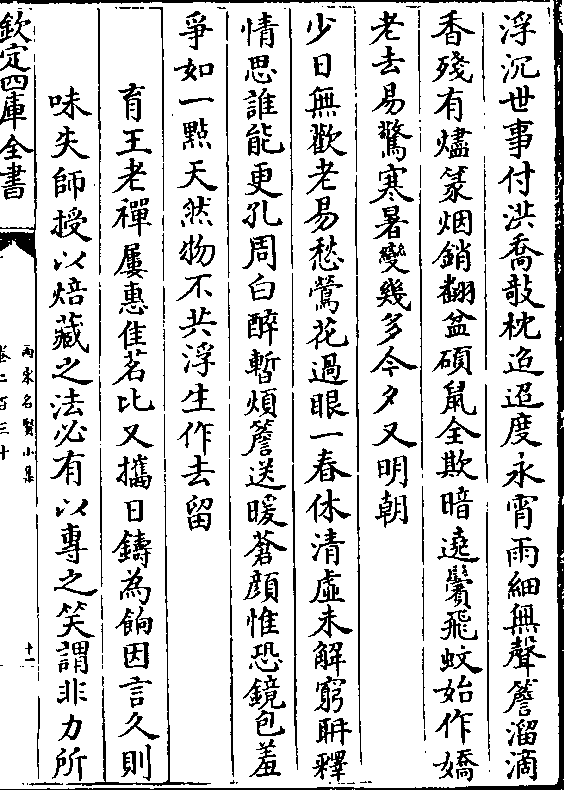 浮沉世事付洪喬攲枕迢迢度永宵雨細無聲簷溜滴
香殘有燼篆烟銷翻盆碩鼠全欺暗遶鬢飛蚊始作嬌
老去易驚寒暑變幾多今夕又明朝
少日無歡老易愁鶯花過眼一春休清虛未解窮耼釋
情思誰能更孔周白醉暫煩簷送暖蒼顔惟恐鏡包羞
爭如一點天然物不共浮生作去留
育王老禪屢惠佳茗比又攜日鑄為餉因言久則
味失師授以焙藏之法必有以專之笑謂非力所
欽定四庫全書
兩宋名賢小集
卷二百三十
十一